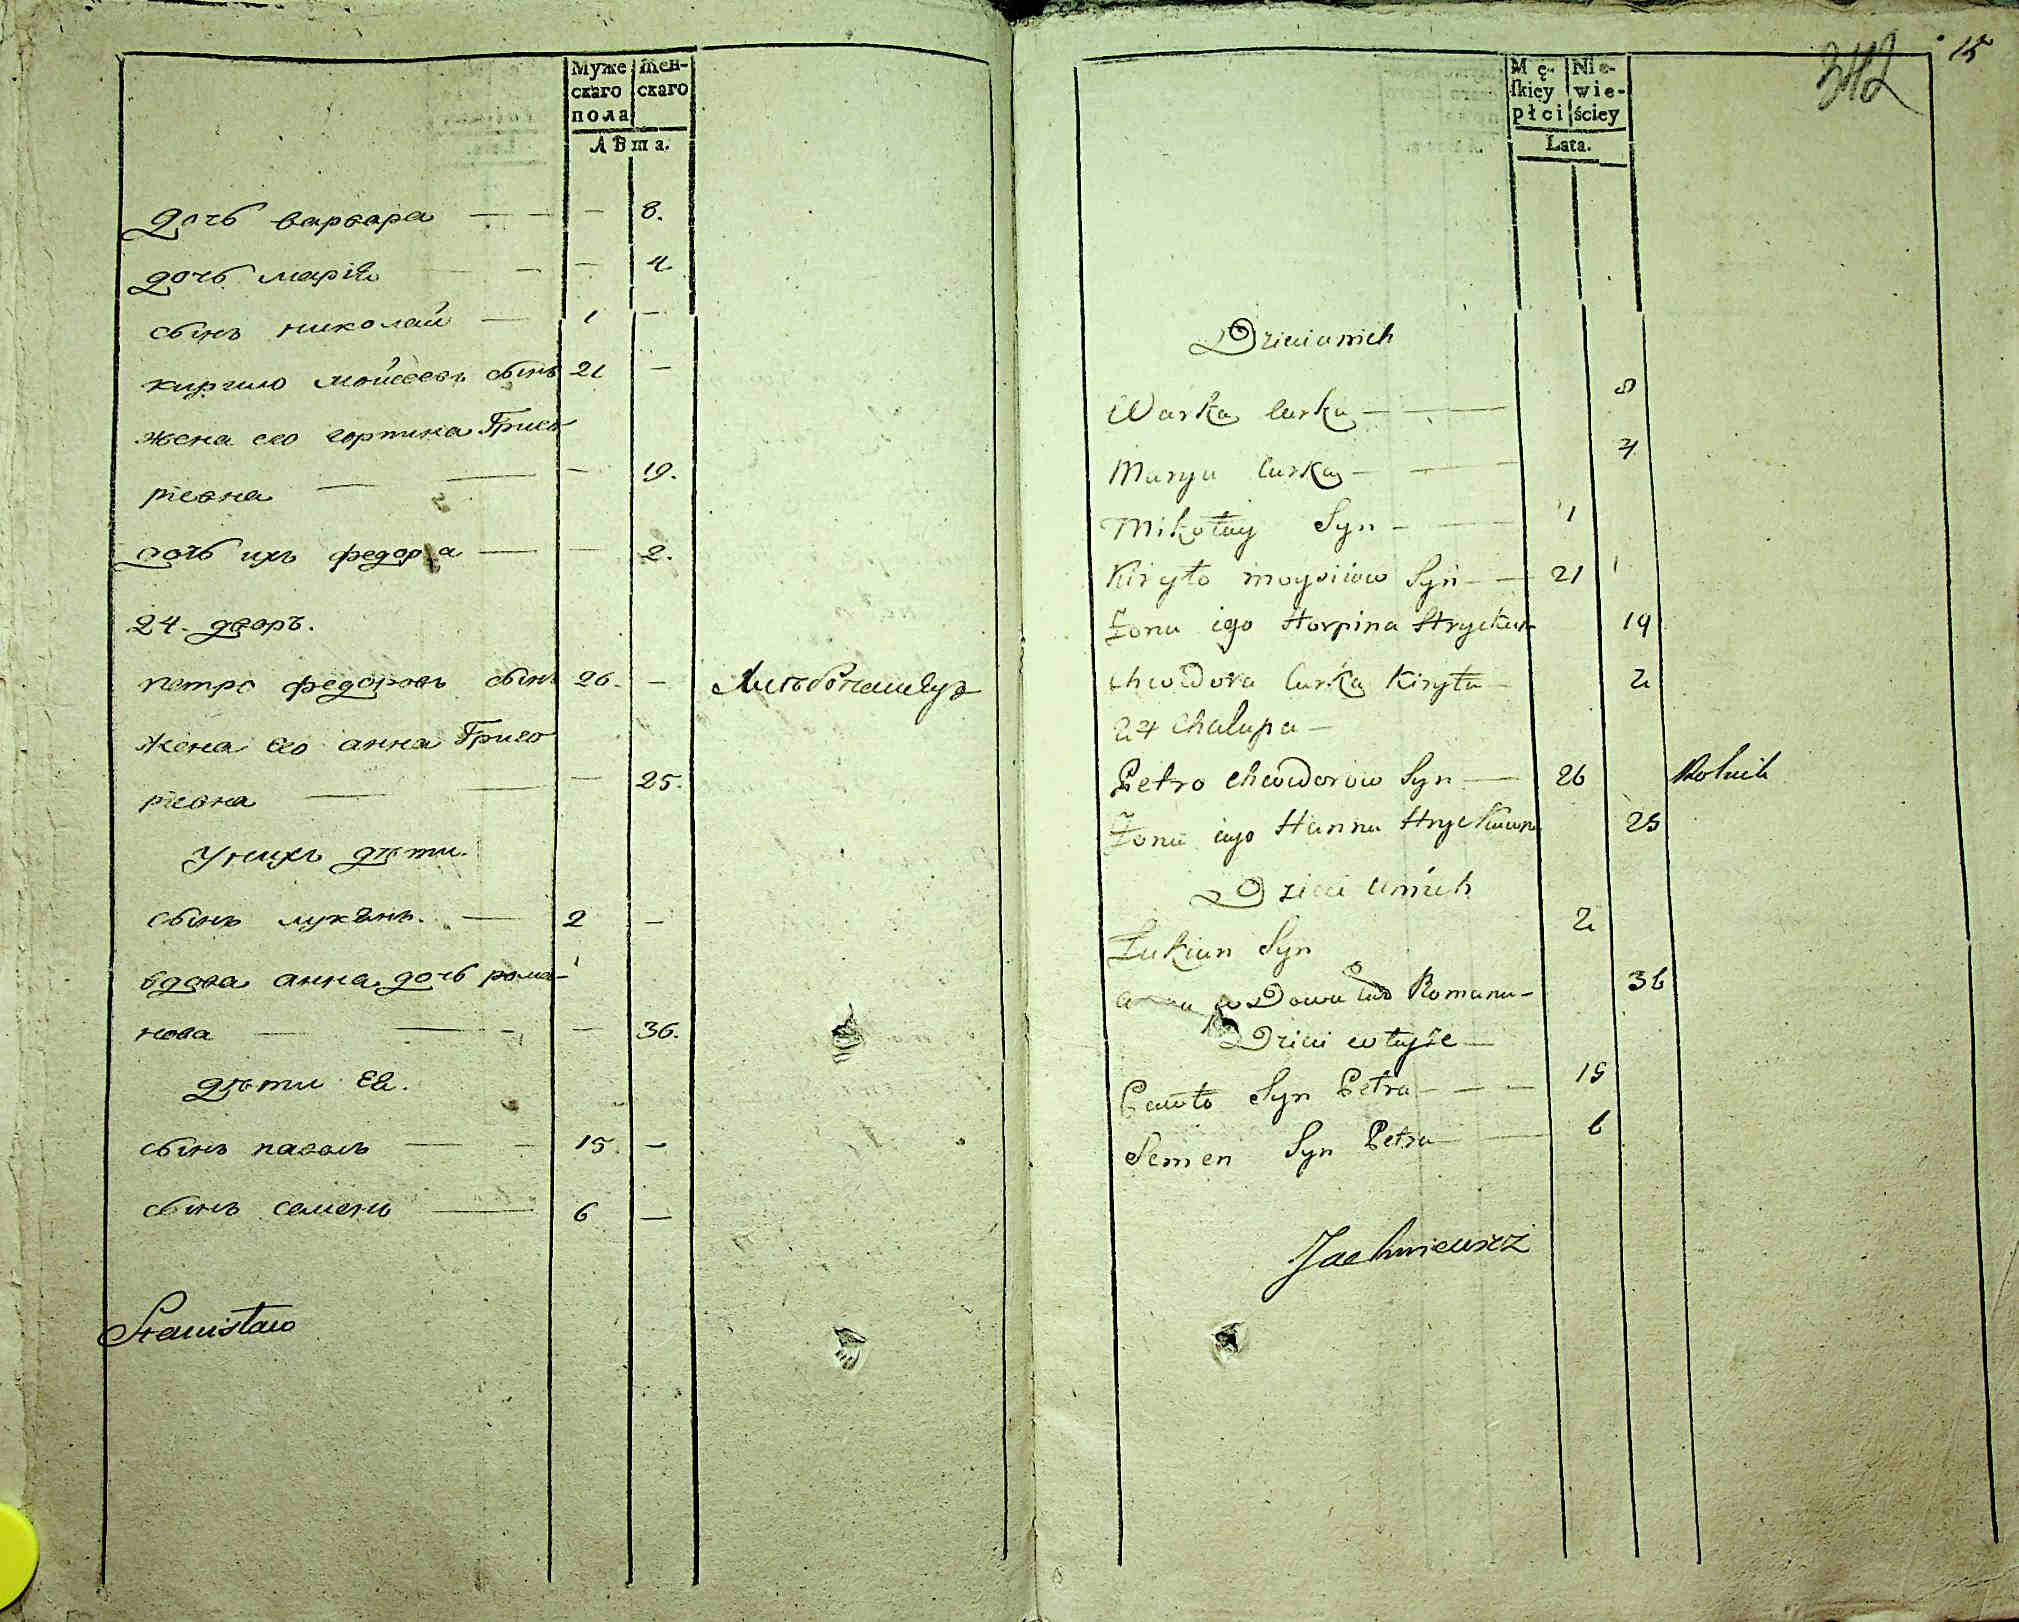 Муже
скаго
пола
Жен-
скаго
Лѣта.
дочь варвара — — — 8.
дочь марія — — — 4
сынъ николай — 1 —
кирило мойсеевъ сынъ 21 —
жена его горпина Григо
ріевна — — — 19.
дочь ихъ федора — — 2.
24. дворъ.
петро федоровъ сынъ 26. — Хлѣбопашецъ
жена его анна Григо
ріевна — — — 25.
У нихъ дѣти.
сынъ лукянъ. — 2 —
вдова анна дочь рома-
нова — — — 36.
дѣти Ея.
сынъ павелъ — — 15. —
сынъ семенъ — 6 —
Stanisław
342
15
Mę-
ſkiey
płci
Nie-
wie-
ściey
Lata.
Dzieci u nich
Warka Curka — — 8
Marya Curka — — — 4
Mikołay Syn — — 1
Kiryło moysiiow Syn — — 21
Żona iego Horpina Hryckow 19
Chwedora Curka Kiryła — 2
24 Chałupa —
Petro Chwedorow Syn — 26 Rolnik
Żona iego Hanna Hryckowna 25
Dzieci u nich
Łukian Syn 2
wdowa Romana — 36
Dzieci teyże —
Pawło Syn Petra — — — 15
Semen Syn Petra — — 6
Jachniewicz